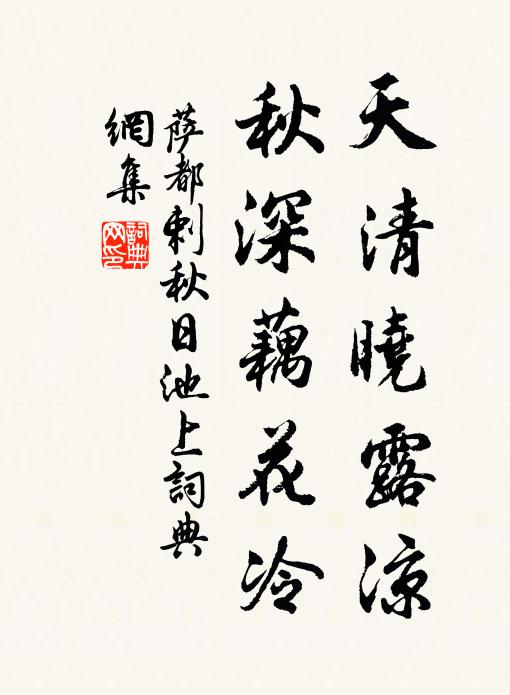 天清曉露涼
秋深藕花冷
萨都剌秋日池上詞典
網集
詞典
网印